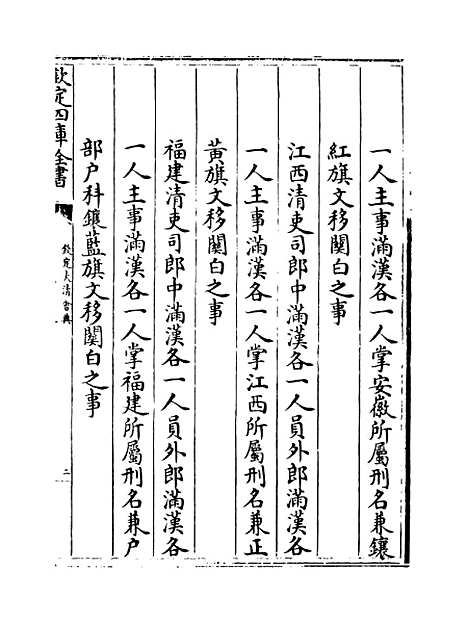 一人主事滿漢各一人掌安徽所屬刑名兼鑲
紅旗文移關白之事
江西清吏司郎中滿漢各一人員外郎滿漢各
一人主事滿漢各一人掌江西所屬刑名兼正
黃旗文移關白之事
福建清吏司郎中滿漢各一人員外郎滿漢各
一人主事滿漢各一人掌福建所屬刑名兼户
部户科鑲藍旗文移關白之事
欽定四庫全書
欽定大清會典
二